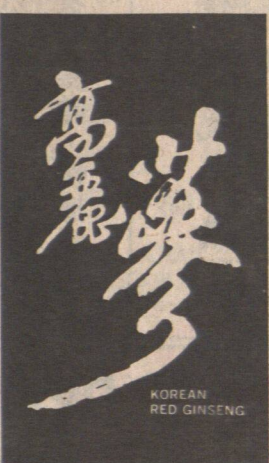 高麗
蔘
KOREAN
RED GINSENG